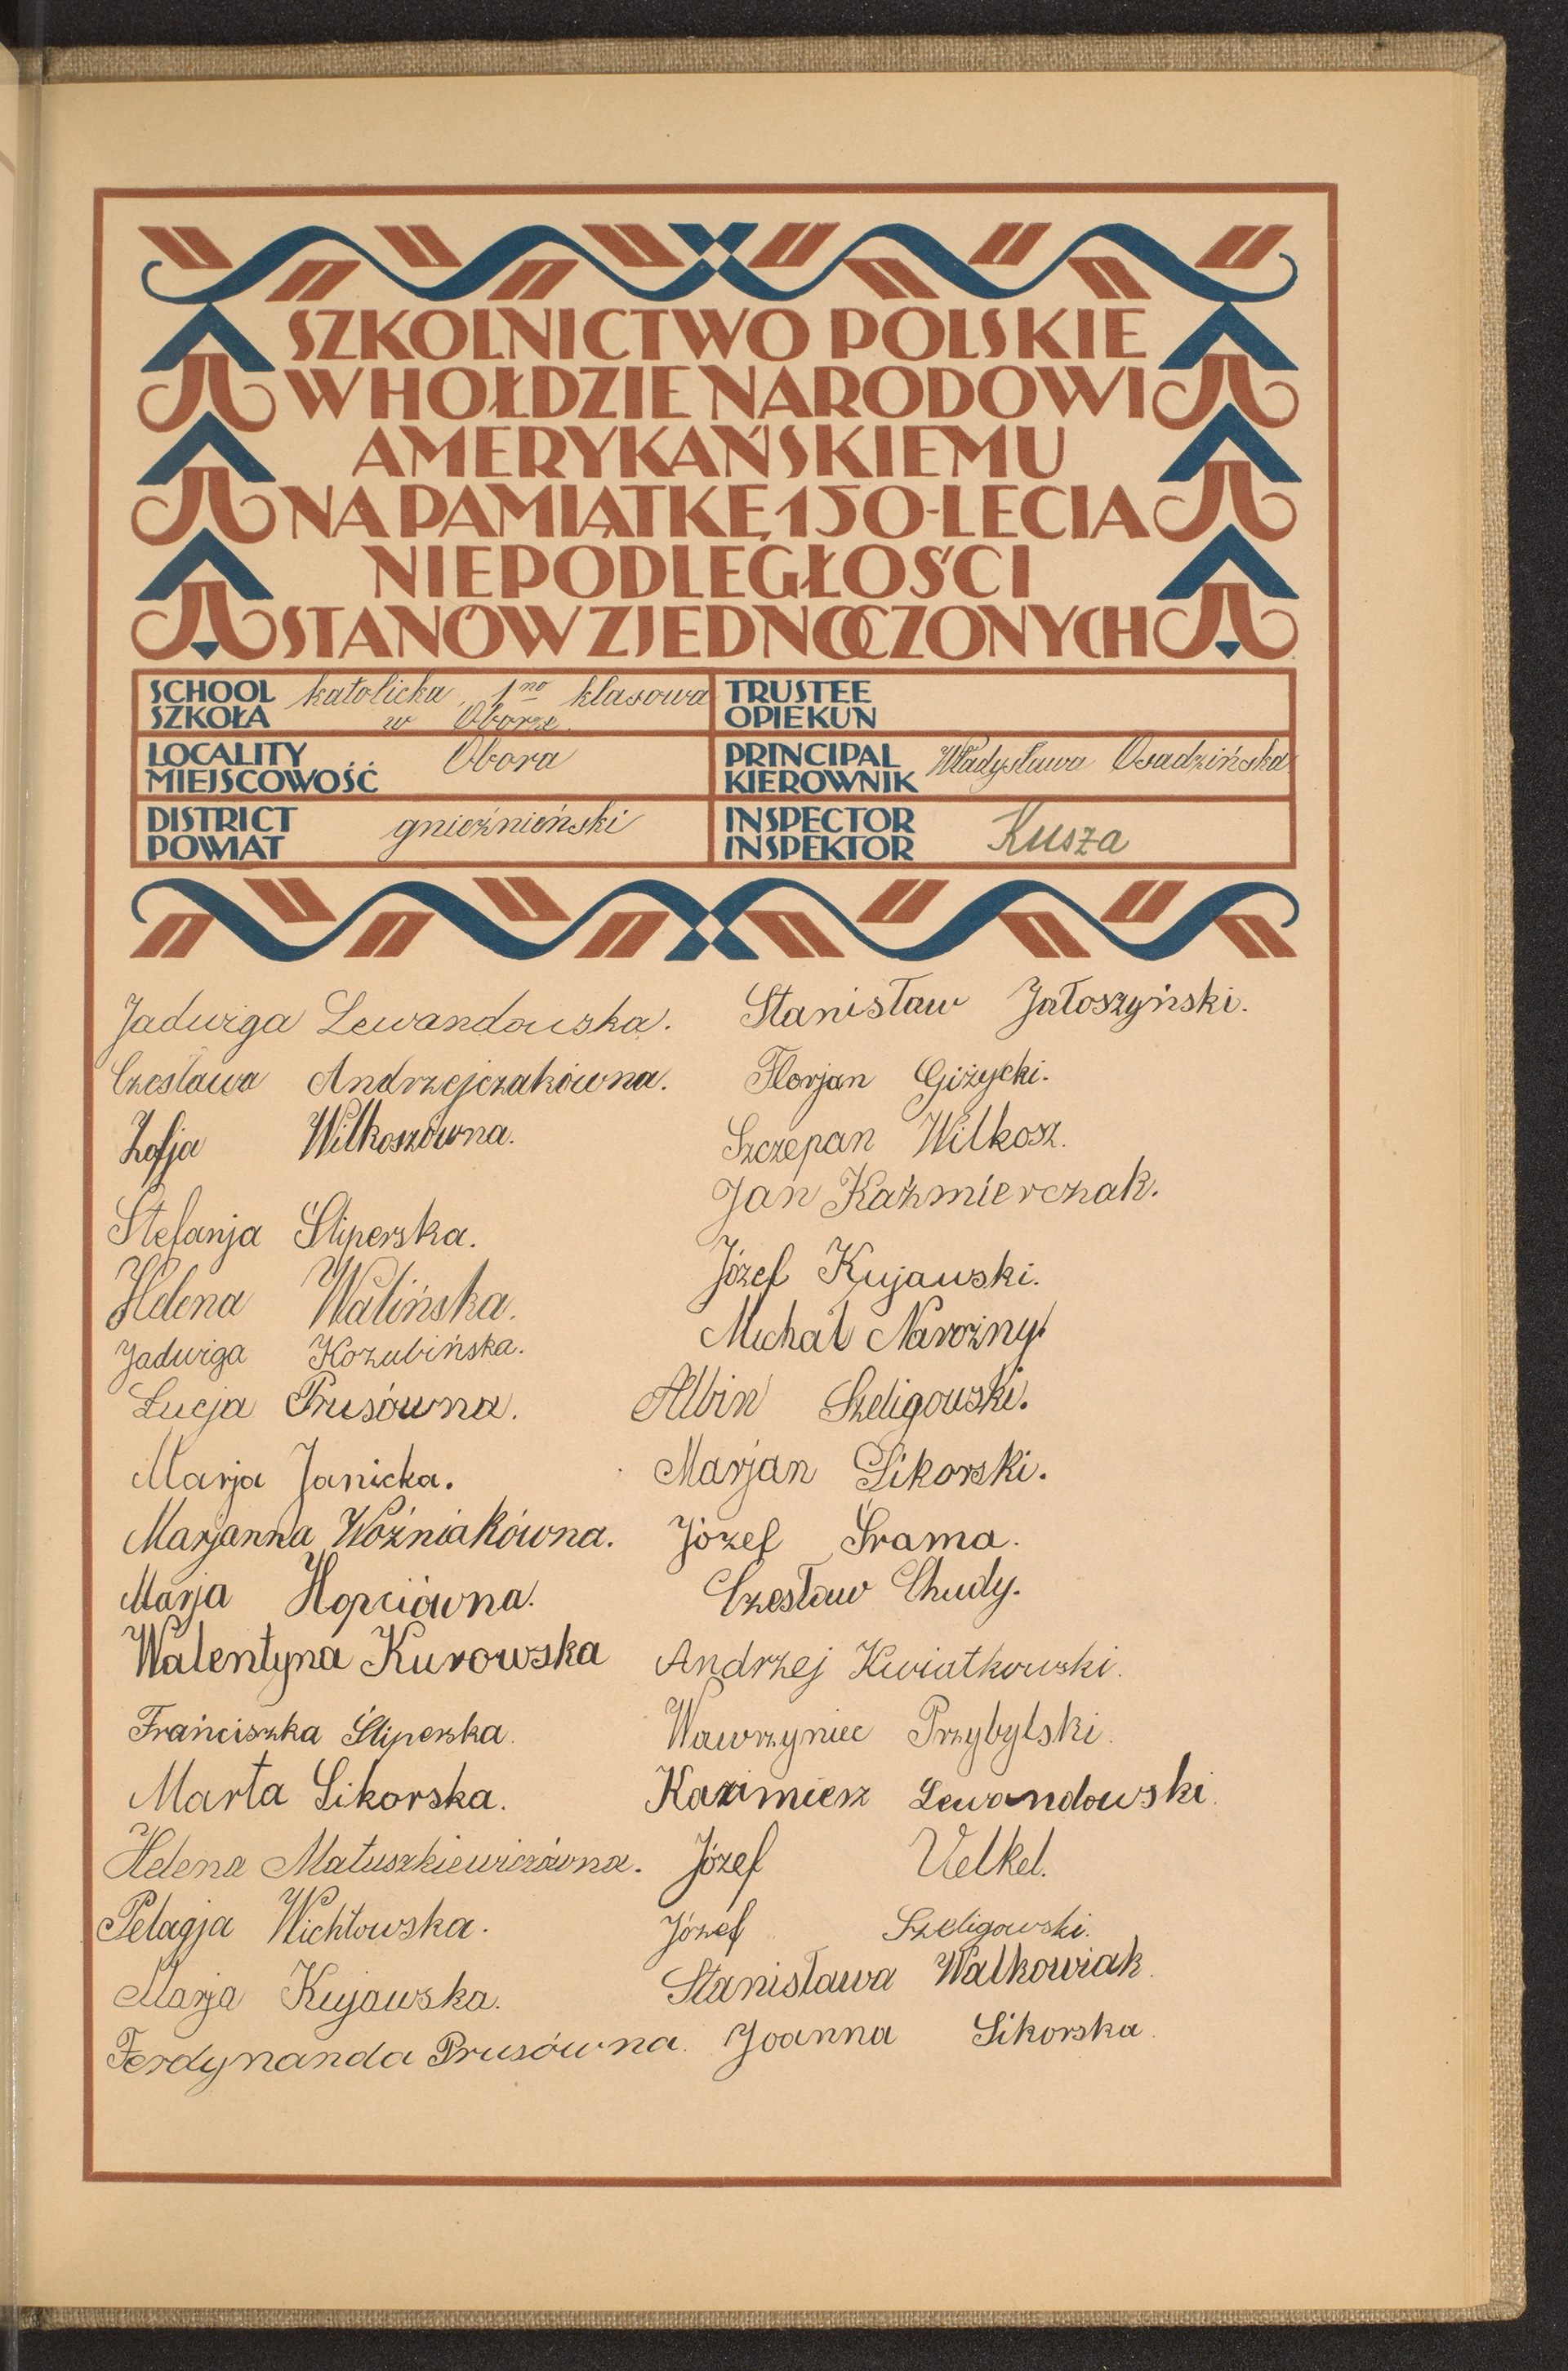 SZKOLNICTWO POLSKIE
W HOŁDZIE NARODOWI
AMERYKAŃSKIEMU
NA PAMIĄTKĘ 150-LECIA
NIEPODLEGŁOŚCI
STANÓW ZJEDNOCZONYCH
SCHOOL katolicka 1no klasowa
SZKOŁA w Oborze.
LOCALITY Obora
MIEJSCOWOŚĆ
DISTRICT gnieźnieński
POWIAT
TRUSTEE
OPIEKUN
PRINCIPAL Władysława Osadzińska
KIEROWNIK
INSPECTOR Kusza
INSPEKTOR
Jadwiga Lewandowska.
Czesława Andrzejczakówna.
Zofja Wilkoszówna.
Stefanja Śliperska.
Helena Walińska.
Jadwiga Kozubińska.
Łucja Prusówna.
Marja Janicka.
Marjanna Woźniakówna.
Marja Hopciówna.
Walentyna Kurowska
Franciszka Śliperska.
Marta Sikorska.
Helena Matuszkiewiczówna.
Pelagja Wichłowska.
Marja Kujawska.
Ferdynanda Prusówna.
Stanisław Jałoszyński.
Florjan Giżycki.
Szczepan Wilkosz.
Jan Kaźmierczak.
Józef Kujawski.
Michał Narożny.
Albin Szeligowski.
Marjan Sikorski.
Józef Śrama.
Czesław Chudy.
Andrzej Kwiatkowski.
Wawrzyniec Przybylski.
Kazimierz Lewandowski.
Józef Velkel.
Józef Szeligowski.
Stanisława Walkowiak.
Joanna Sikorska.